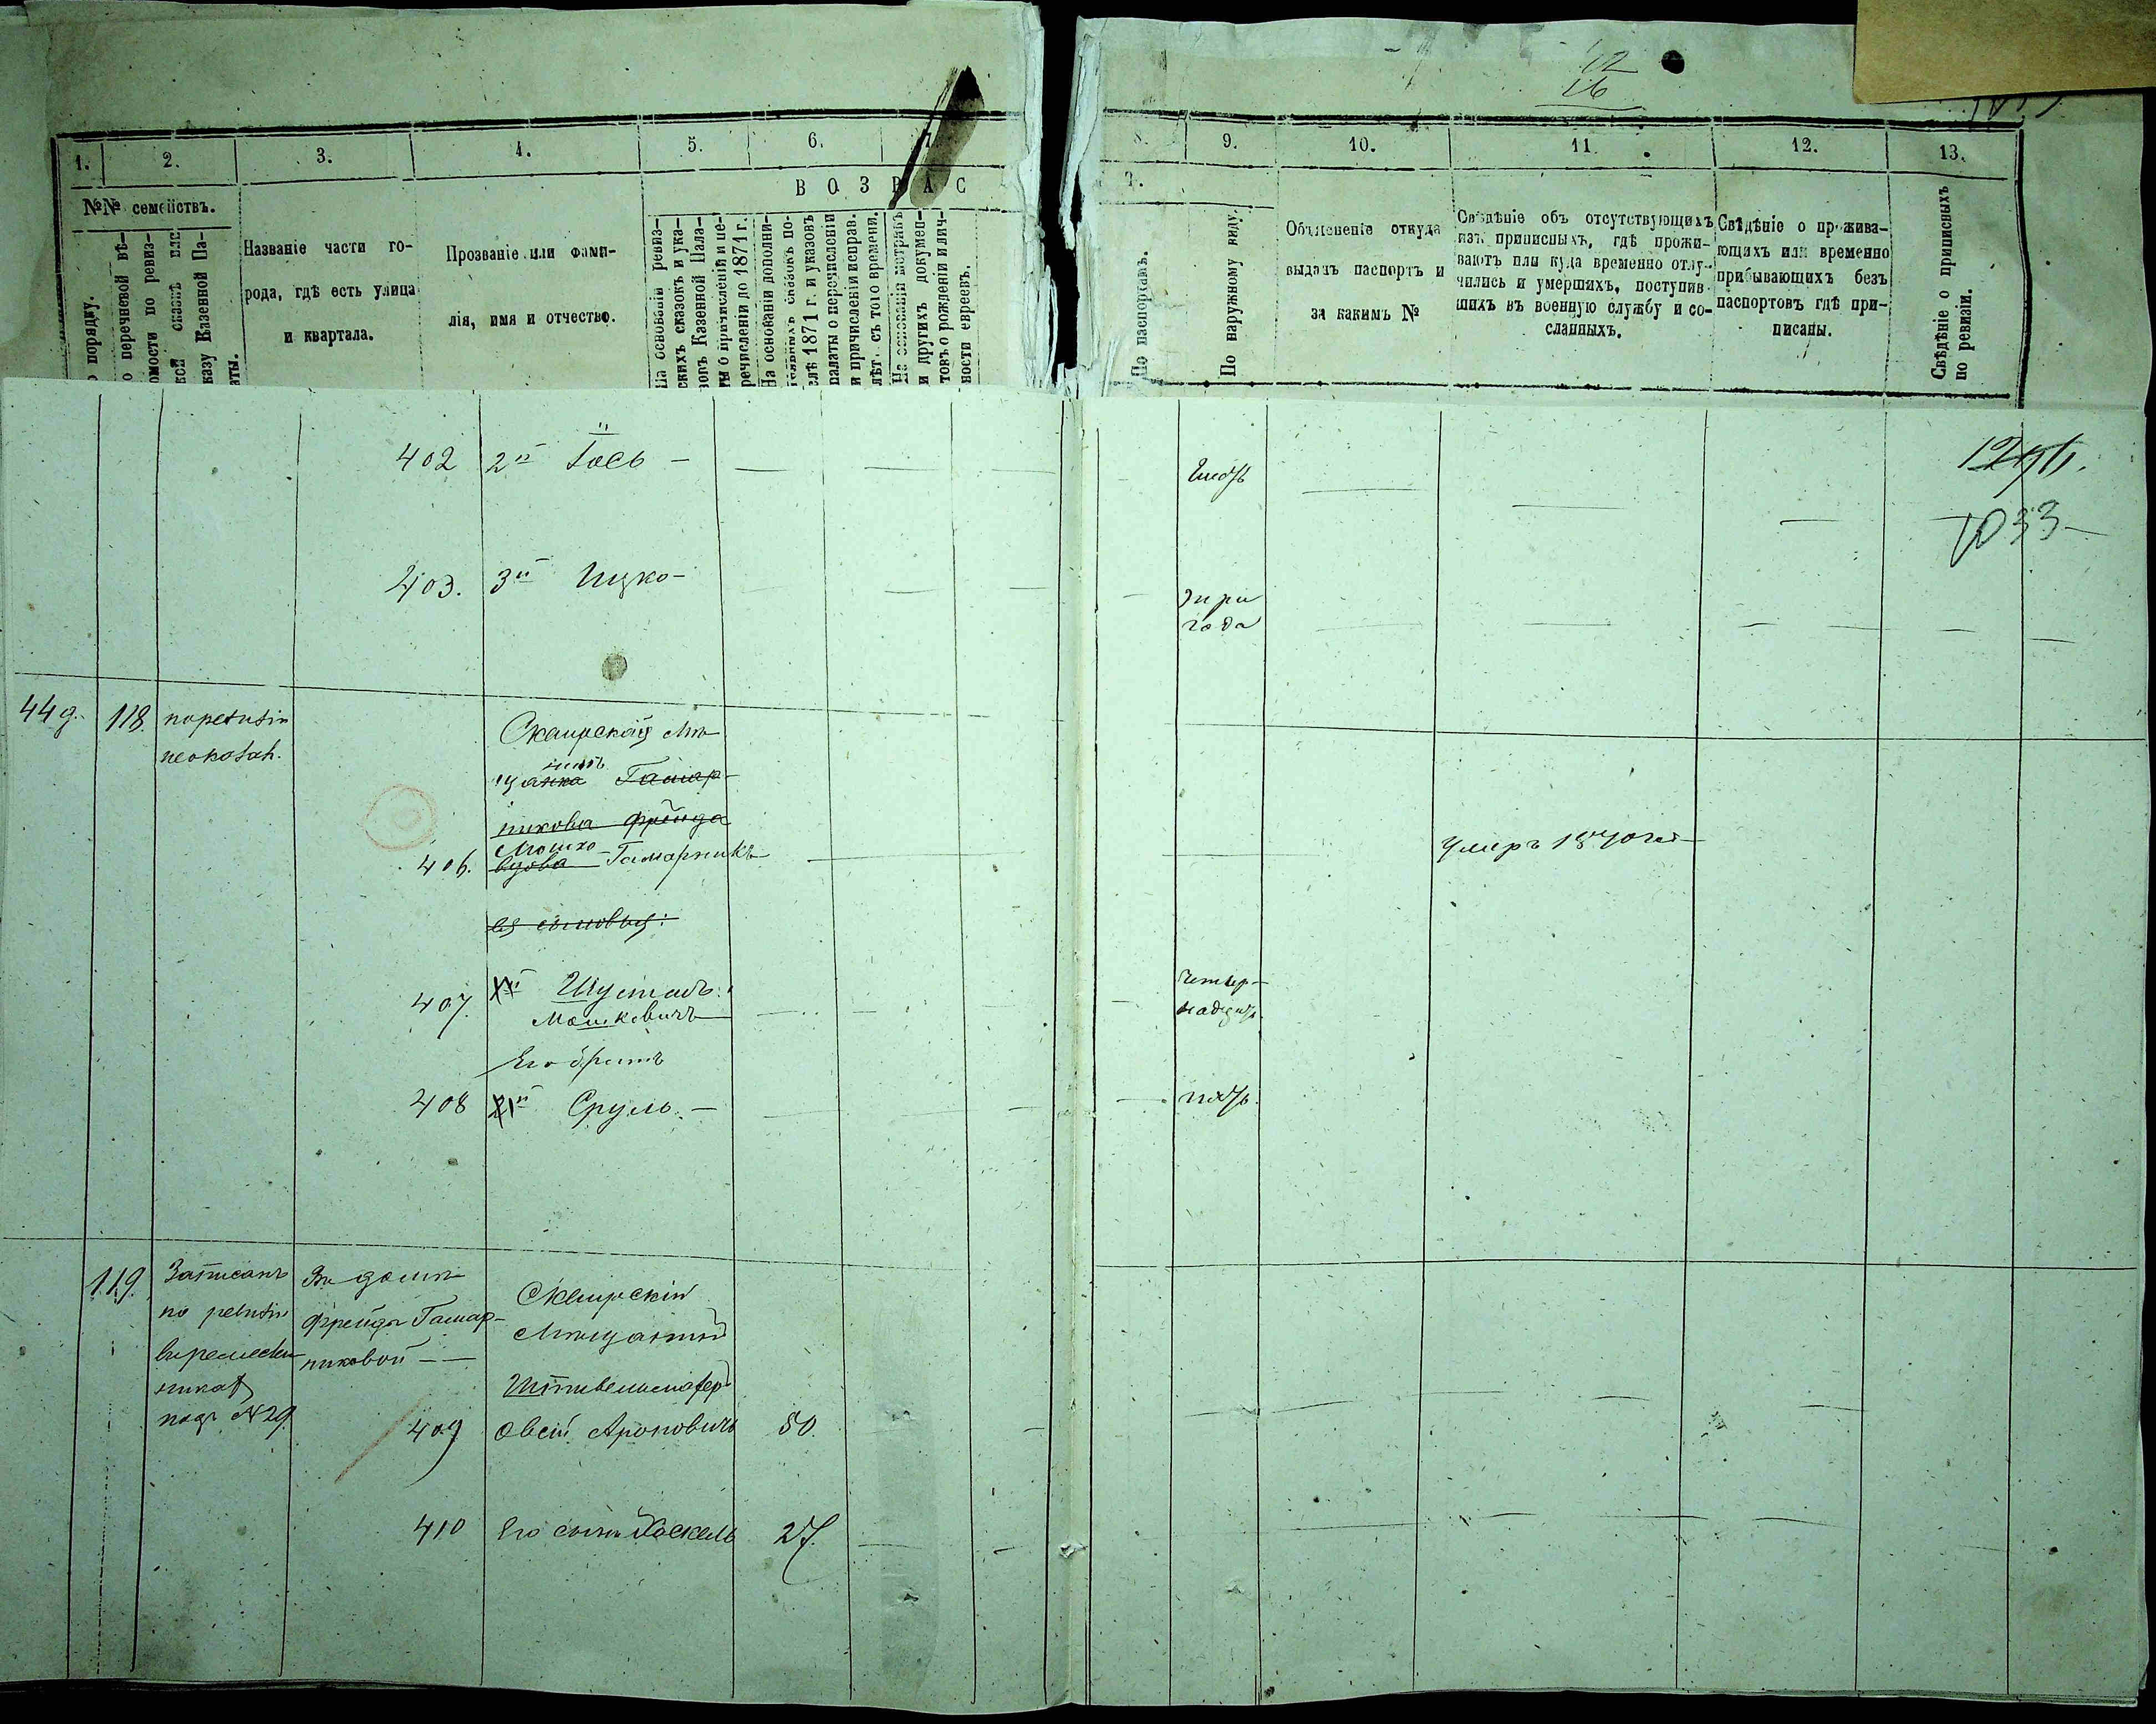 12
16
1. 2. 3. 4. 5. 6. 7. 8. 9. 10. 11. 12. 13.
ВОЗРАС Т.
№№ семействъ.
о порядку.
о перечневой вѣ-
омости по ревиз-
кой сказкѣ или
казу Казенной Па-
аты.
Названіе части го-
рода, гдѣ есть улица
и квартала.
Прозваніе или фами-
лія, имя и отчество.
На основаніи ревиз-
скихъ сказокъ и ука-
зовъ Казенной Пала-
ты о причисленіи и пе-
речисленіи до 1871 г.
На основаніи дополни-
тельныхъ сказокъ по-
слѣ 1871 г. и указовъ
палаты о перечисленіи
и причисленіи исправ.
лѣтъ съ того времени.
На основаніи метрикъ
и другихъ докумен-
товъ о рожденіи и лич-
ности евреевъ.
По паспортамъ.
По наружному виду.
Объясненіе откуда
выданъ паспортъ и
за какимъ №
Свѣдѣніе объ отсутствующихъ
изъ приписныхъ, гдѣ прожи-
ваютъ или куда временно отлу-
чились и умершихъ, поступив-
шихъ въ военную службу и со-
сланныхъ.
Свѣдѣніе о прожива-
ющихъ или временно
прибывающихъ безъ
паспортовъ гдѣ при-
писаны.
Свѣдѣніе о приписныхъ
по ревизіи.
402 2й Іось – шесть
1033
403. 3й Ицко – три
года
449. 118. по ревизіи
непоказан.
Сквирскій мѣ-
нинъ
щанка Гамар-
никова Фрейда
Мошко
406. вдова Гамарникъ умеръ 1870 год
ея сыновья:
407. Шулимъ четыр-
Мошковичъ надцать
Его братъ
408 2й Сруль. – пять.
119. Записанъ
по ревизіи
въ ремеслен-
никахъ
подъ №29.
Въ домѣ
Фрейды Гамар-
никовой –
Сквирскій
Мѣщанинъ
409 Овсій Ароновичъ 50.
410 Его сынъ Хаскель 27.